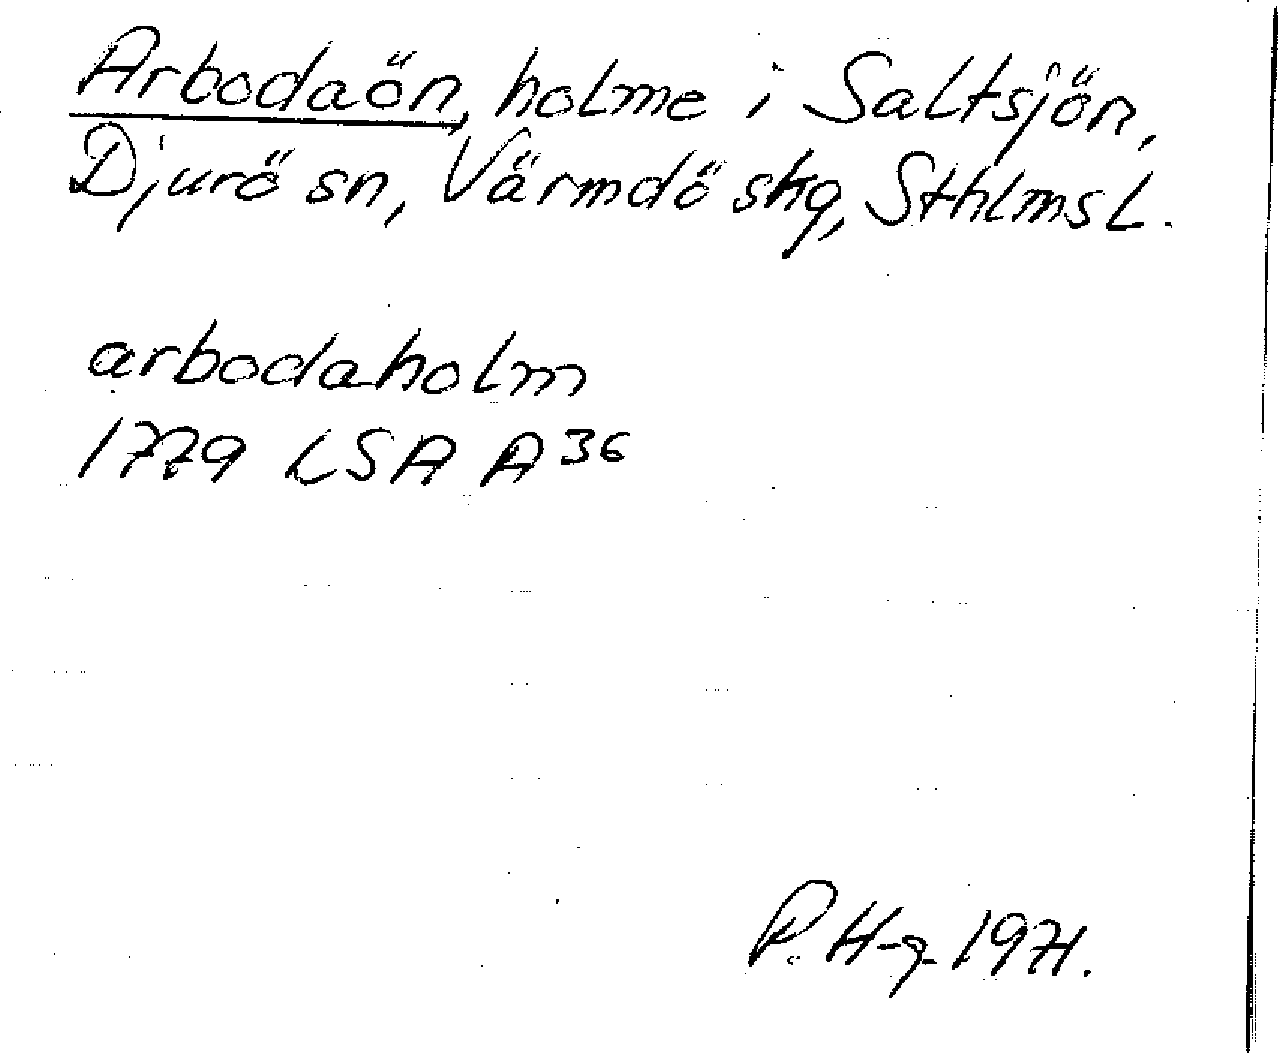 Arbodaön, holme i Saltsjön,
Djurö sn, Värmdö skg, Sthlms L.
arbodaholm
1779 LSA A 36
P. H-g 1971.